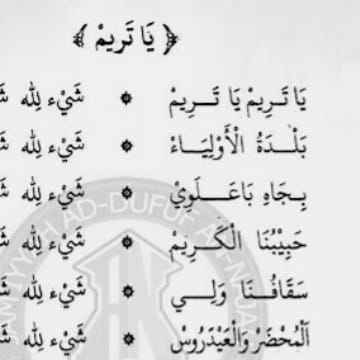 ﴿ يَا تَرِيمْ ﴾
يَا تَـرِيمْ يَا تَـــرِيمْ ۞ شَيْء لِلّٰه
بَلْـــدَةُ الْأَوْلِيَـــاءْ ۞ شَيْء لِلّٰه
بِـجَاهِ بَاعَـــلَوِيْ ۞ شَيْء لِلّٰه
حَبِيْبُنَا الْكَـــرِيْمْ ۞ شَيْء لِلّٰه
سَقَّافُـــنَا وَلِـــي ۞ شَيْء لِلّٰه
اَلْمُحْضَرْ وَالْعَيْدَرُوسْ ۞ شَيْء لِلّٰه
AD-DUFUF AN-NAQA